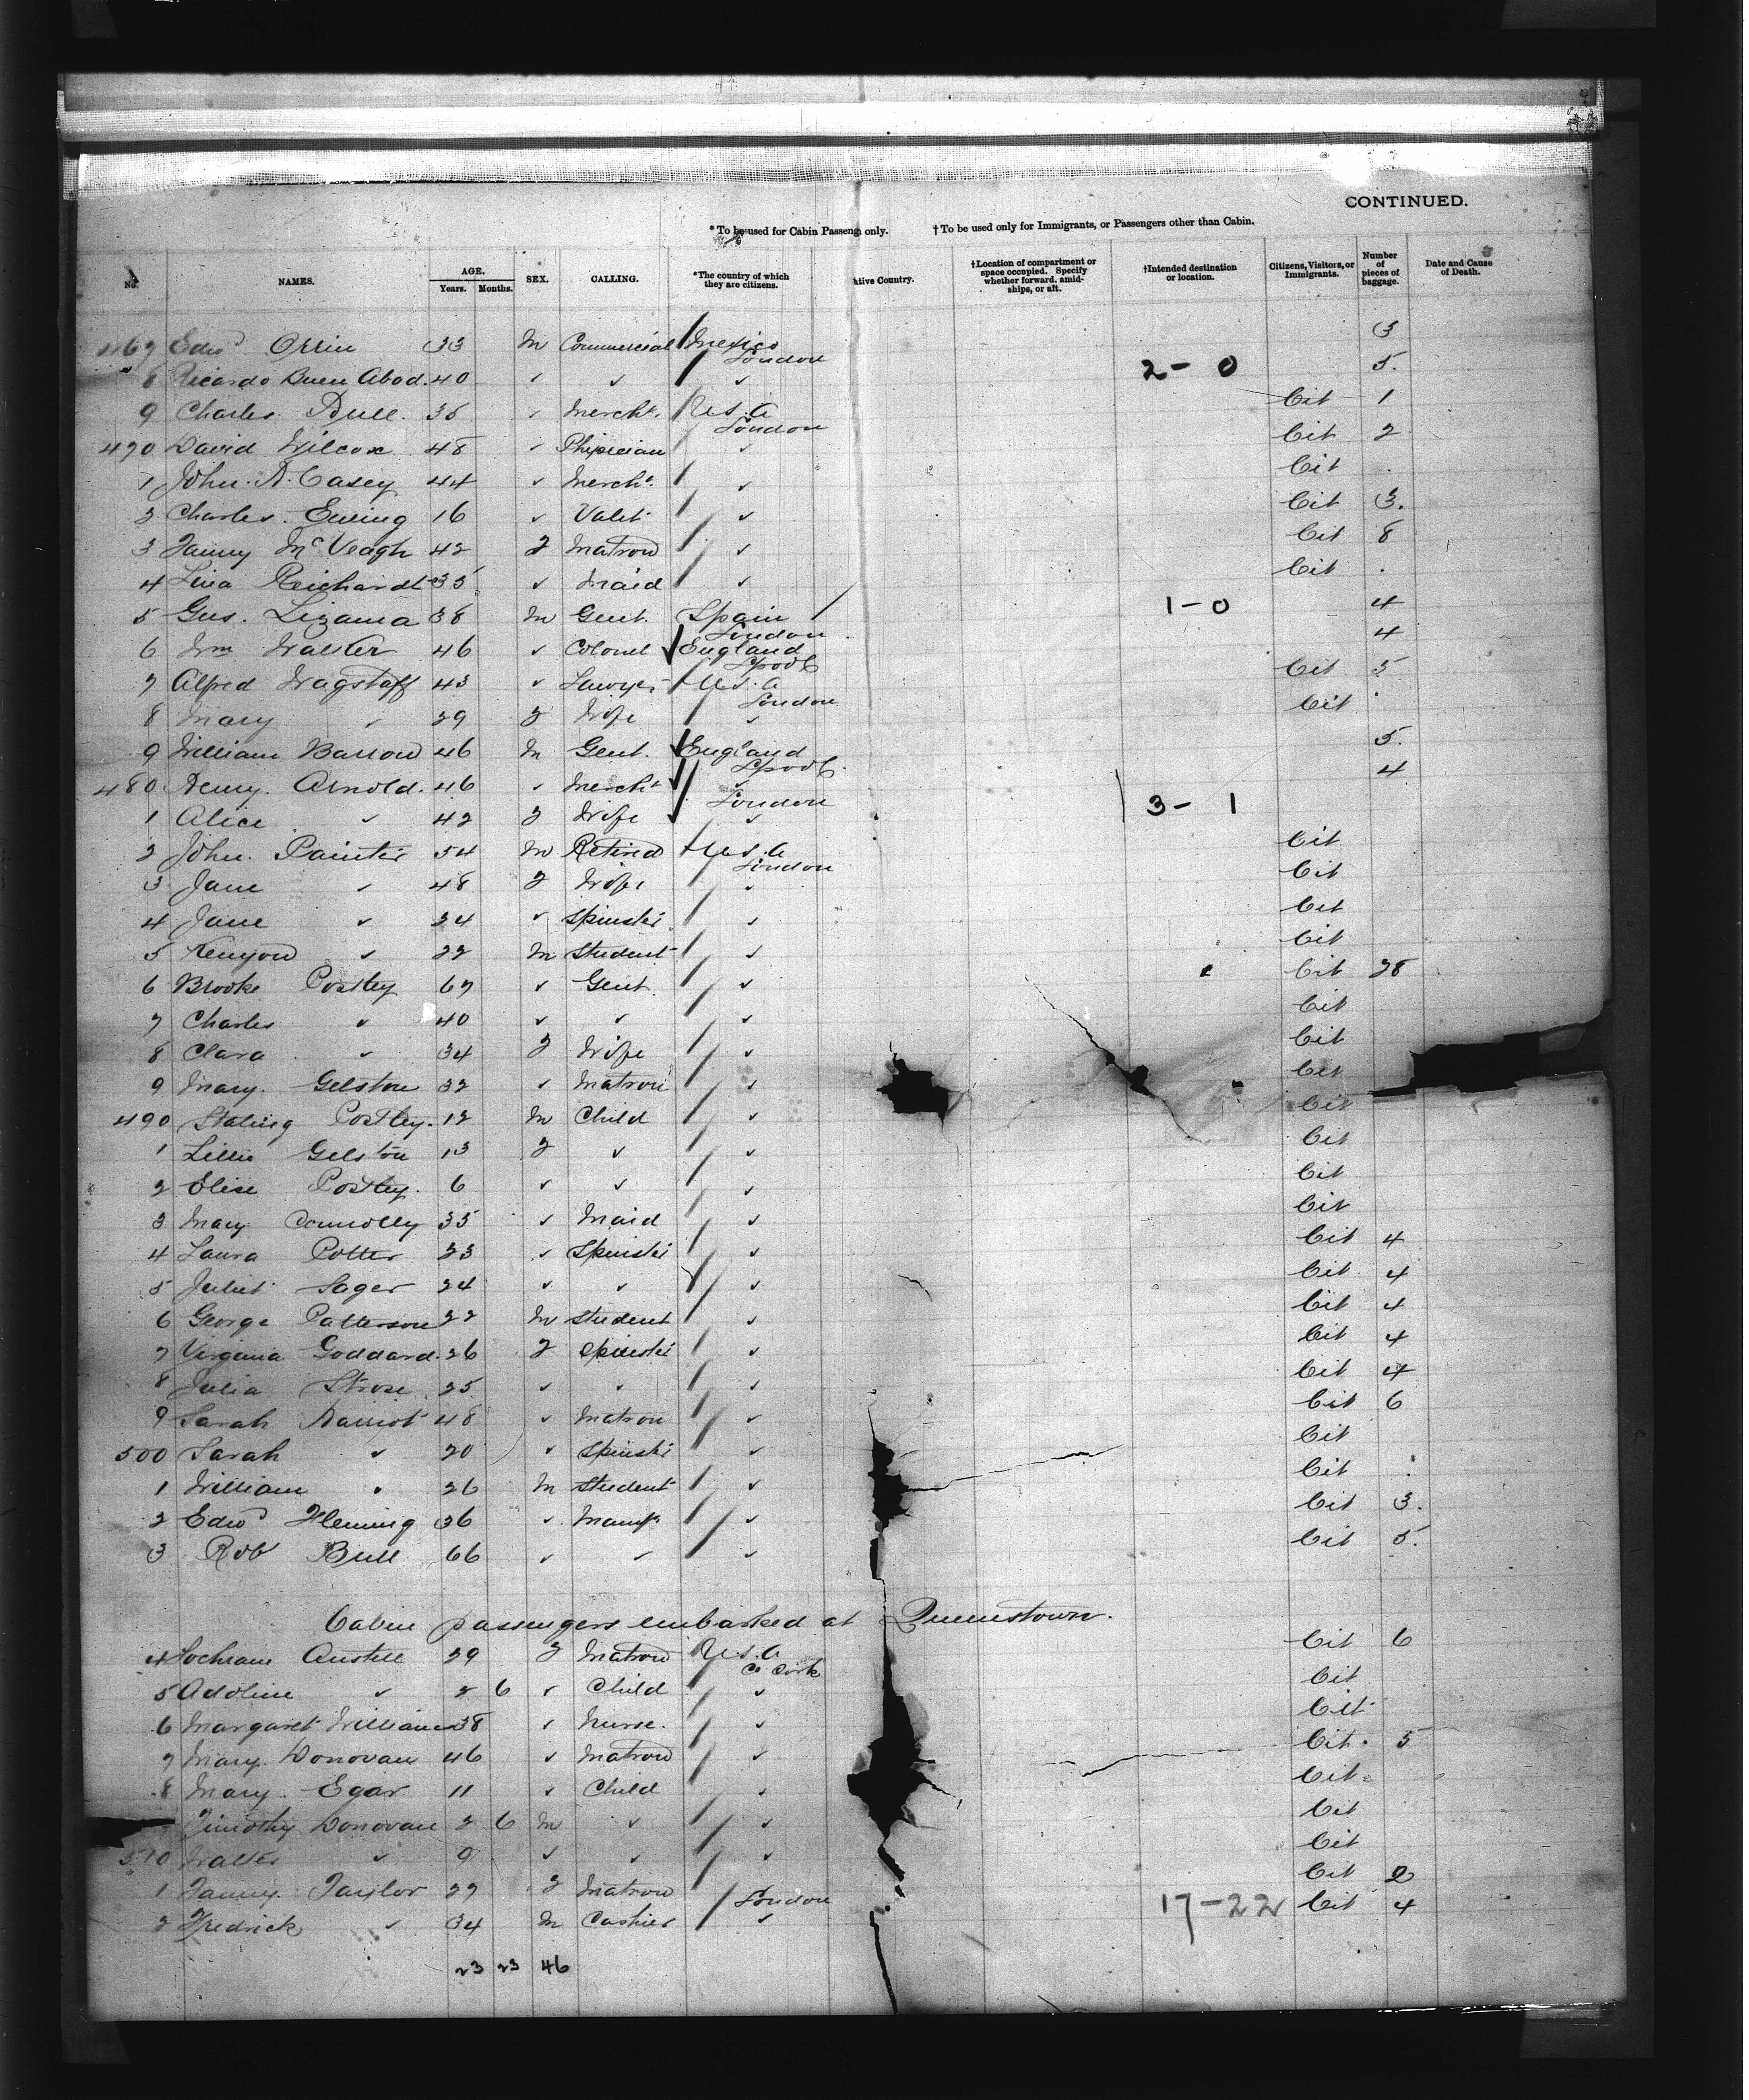 CONTINUED.
* To be used for Cabin Passeng only. † To be used only for Immigrants, or Passengers other than Cabin.
No. NAMES. AGE. Years. Months. SEX. CALLING. *The country of which they are citizens. tive Country. †Location of compartment or space occupied. Specify whether forward, amidships, or aft. †Intended destination or location. Citizens, Visitors, or Immigrants. Number of pieces of baggage. Date and Cause of Death.
467 Edwd Orrin 33 M Commercial Mexico London 3
8 Ricardo Buen Abad. 40 ✓ ✓ ✓ 2-0 5.
9 Charles Bull. 35 ✓ Mercht. U.S.A London Cit 1
470 David Wilcox 48 ✓ Phisician ✓ Cit 2
1 John. A. Casey 44 ✓ Mercht. ✓ Cit
2 Charles. Ewing 16 ✓ Valet ✓ Cit 3.
3 Fanny McVeagh 42 F Matron ✓ Cit 8
4 Lina Reichardt 35 ✓ Maid ✓ Cit .
5 Gus. Lizama 38 M Gent. Spain London 1-0 4
6 Wm Walker 46 ✓ Colonel England Lpool 4
7 Alfred Wagstaff 43 ✓ Lawyer U.S.A London Cit 5
8 Mary ✓ 39 F Wife ✓ Cit
9 William Barrow 46 M Gent. England Lpool. 5.
480 Henry. Arnold. 46 ✓ Mercht ✓ London 4
1 Alice ✓ 42 F Wife ✓ 3- 1
2 John. Painter 54 M Retired U.S.A London Cit
3 Jane ✓ 48 F Wife ✓ Cit
4 Jane ✓ 24 ✓ Spinster ✓ Cit
5 Kenyon ✓ 22 M Student ✓ Cit
6 Brooke Postley 67 ✓ Gent. ✓ Cit 28
7 Charles ✓ 40 ✓ ✓ ✓ Cit
8 Clara ✓ 34 F Wife ✓ Cit
9 Mary. Gelston 32 ✓ Matron ✓ Cit
490 Postley. 12 M Child ✓ Cit
1 Lillie Gelston 13 F ✓ ✓ Cit
2 Elise Postley. 6 ✓ ✓ ✓ Cit
3 Mary Connolly 35 ✓ Maid ✓ Cit
4 Laura Potter 23 ✓ Spinster ✓ Cit 4
5 Juliet Sager 24 ✓ ✓ ✓ Cit 4
6 George Patterson 22 M Student ✓ Cit 4
7 Virginia Goddard. 26 F Spinster ✓ Cit 4
8 Julia 25 ✓ ✓ ✓ Cit 4
9 Sarah 48 ✓ Matron ✓ Cit 6
500 Sarah ✓ 20 ✓ Spinster ✓ Cit
1 William ✓ 26 M Student ✓ Cit
2 Edwd Fleming 36 ✓ Manufr ✓ Cit 3.
3 Rob Bull 66 ✓ ✓ ✓ Cit 5.
Cabin passengers embarked at Queenstown.
4 Lochrane Austell 29 F Matron U.S.A Co Cork Cit 6
5 Adoline ✓ 2 6 ✓ Child ✓ Cit
6 Margaret Williams 38 ✓ Nurse. ✓ Cit
7 Mary Donovan 46 ✓ Matron ✓ Cit. 5
8 Mary. Egar 11 ✓ Child ✓ Cit
Timothy Donovan 2 6 M ✓ ✓ Cit
510 Walter ✓ 9 ✓ ✓ ✓ Cit
1 Fanny. Taylor 27 F Matron London Cit 2
2 Fredrick ✓ 34 M Cashier ✓ 17-22 Cit 4
23 23 46